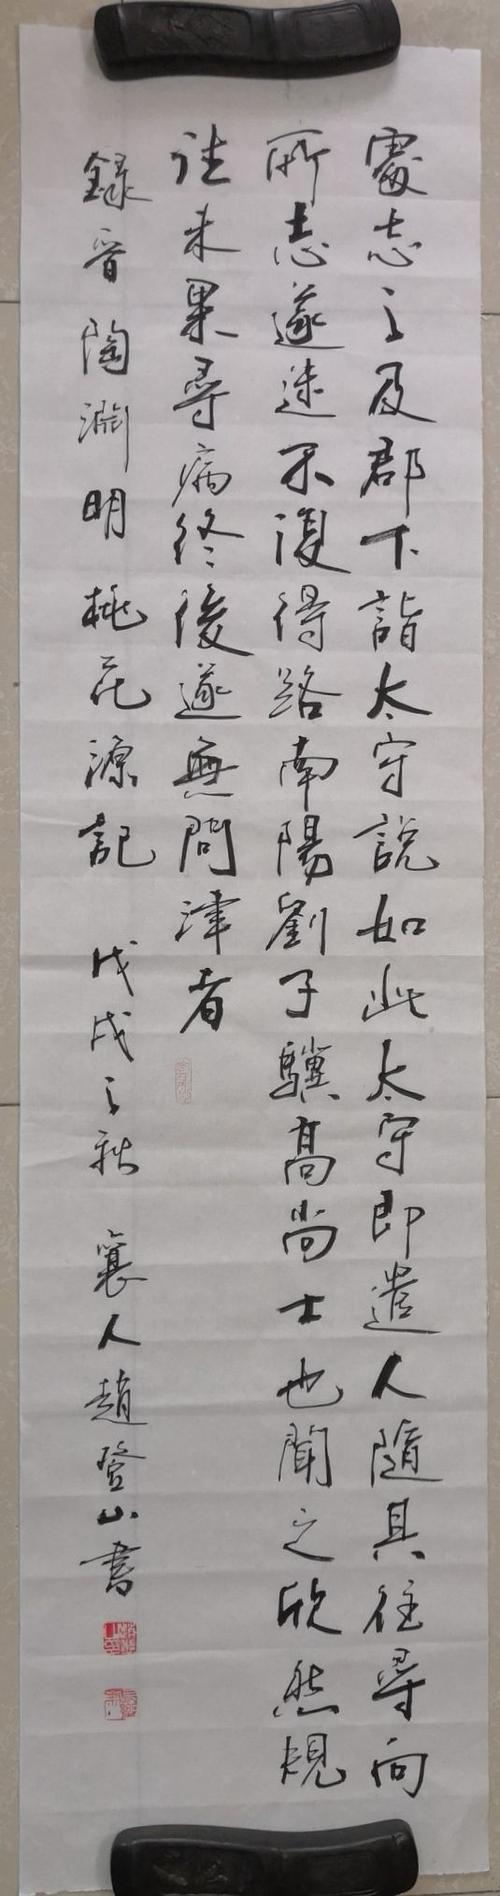 處志之及郡下詣太守說如此太守即遣人隨其往尋向
所志遂迷不復得路南陽劉子驥高尚士也聞之欣然規
往未果尋病終後遂無問津者
錄晉陶淵明桃花源記 戊戌之秋 襄人趙登山書